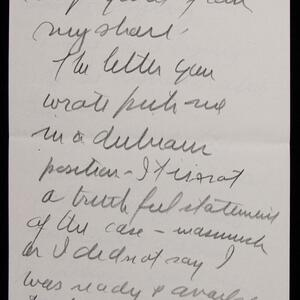 my share.
The letter you
wrote puts me
in a
position - It is not
a truthful statement
of the case - inasmuch
as I did not say I
was ready &